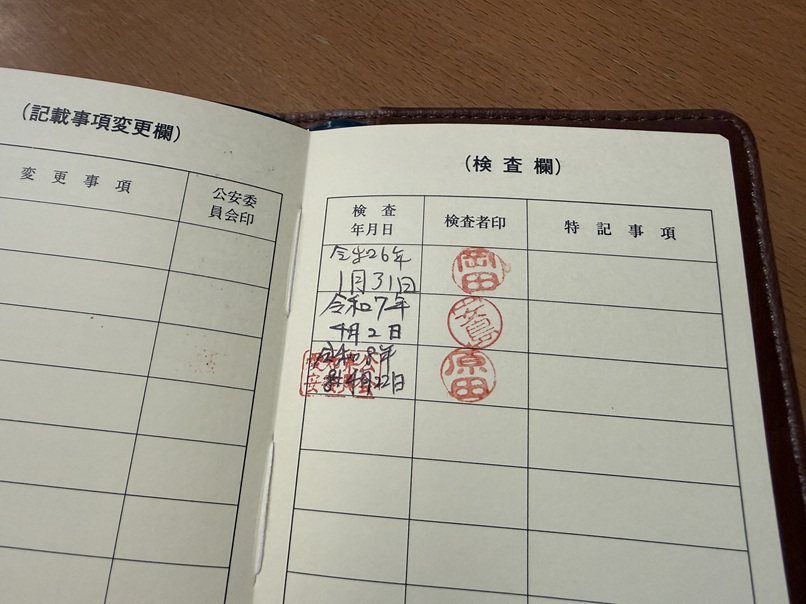 (記載事項変更欄)
変更事項
公安委
員会印
(検査欄)
検査
年月日
検査者印
特記事項
令和6年
1月31日
岡田
令和7年
4月2日
安島
令和8年
月22日
原田